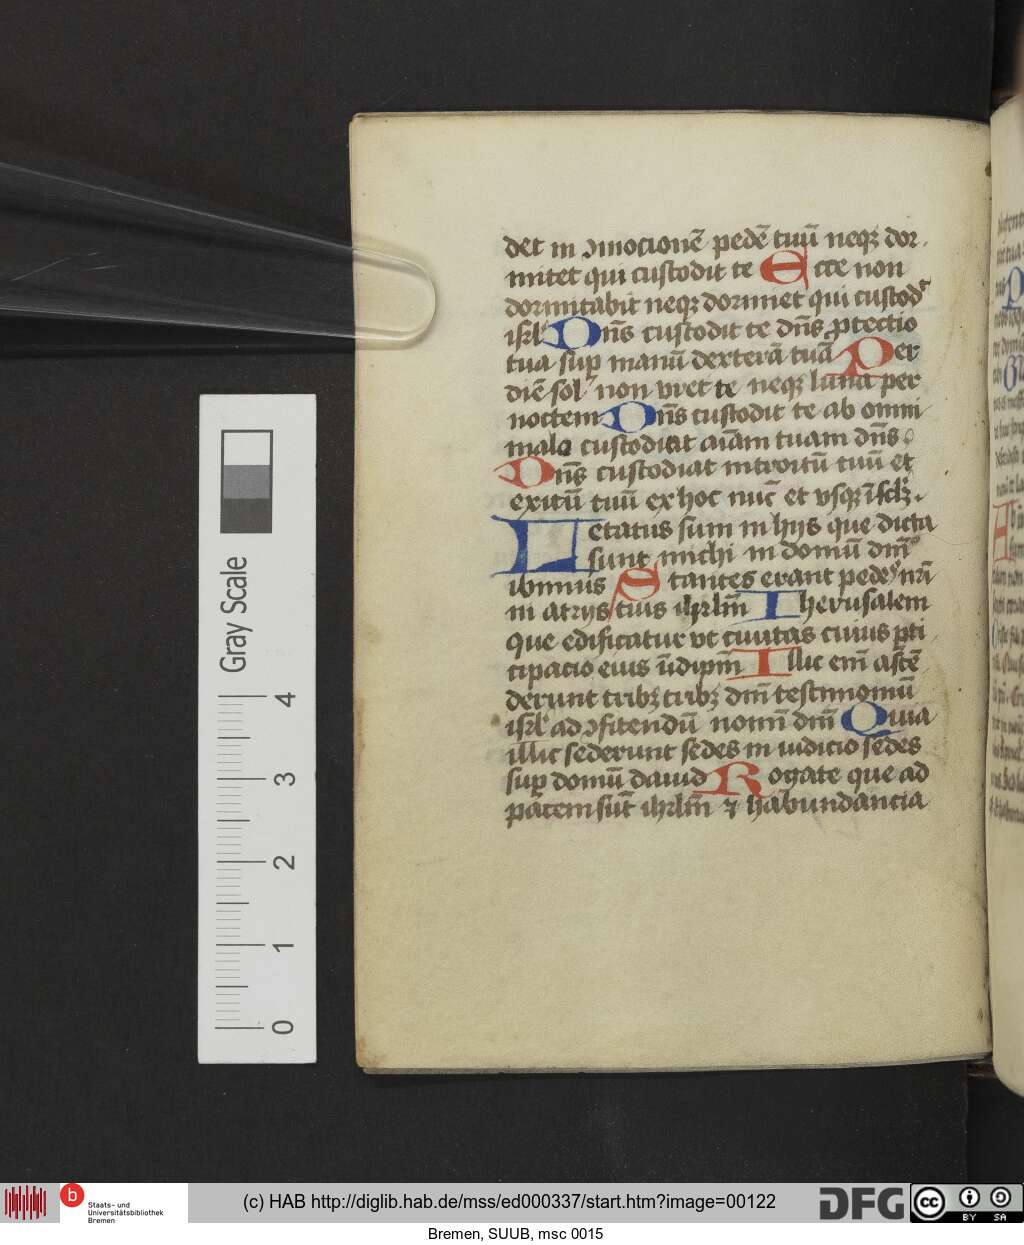 det in ꝯmocionē pedē tuū neqꝫ dor
mitet qui custodit te Ecce non
dormitabit neqꝫ dormiet qui custod᷒
isrl' Dn̄s custodit te dn̄s ꝓtectio
tua suꝑ manū dexterā tuā Per
diē sol non vret te neqꝫ luna per
noctem Dn̄s custodit te ab omni
malo custodiat aīam tuam dn̄s
Dn̄s custodiat introitū tuū et
exitū tuū ex hoc nūc et vsqꝫ ī sclꝫ.
Letatus sum in hijs que dicta
sunt michi in domū dnī
ibimus Stantes erant pedes nr̄i
in atrijs tuis ihrlm̄ Iherusalem
que edificatur vt ciuitas cuius ꝑti
cipacio eius ī idipm̄ Illic em̄ ascē
derunt tribꝫ tribꝫ dnī testimoniū
isrl' ad ꝯfitendū nomī dnī Quia
illic sederunt sedes in iudicio sedes
suꝑ domū dauid Rogate que ad
pacem sūt ihrlm̄ ⁊ habundancia
Gray Scale
4
3
2
1
0
b
Staats- und
Universitätsbibliothek
Bremen
(c) HAB http://diglib.hab.de/mss/ed000337/start.htm?image=00122
DFG
cc
BY SA
Bremen, SUUB, msc 0015